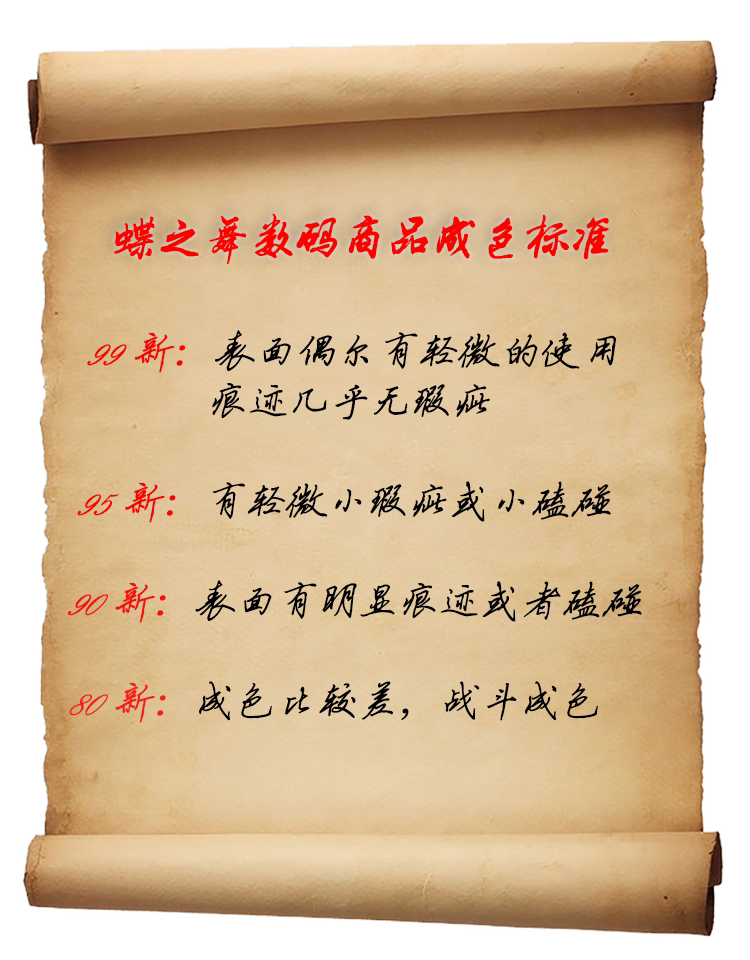 蝶之舞数码商品成色标准
99新：表面偶尔有轻微的使用
痕迹几乎无瑕疵
95新：有轻微小瑕疵或小磕碰
90新：表面有明显痕迹或者磕碰
80新：成色比较差，战斗成色